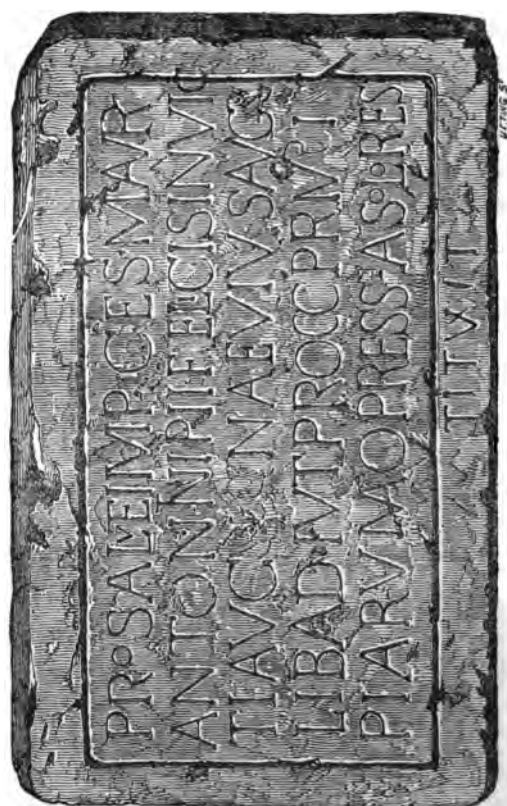 PRO SALVTE IMP·CES MAVR
ANTONINI PII FELICIS INVIC
TI AVG NAEVIVS AVG
LIB ADIVT PROCC PRINCI
PIA RVINA OPRESS A SOLO RES
TITVIT